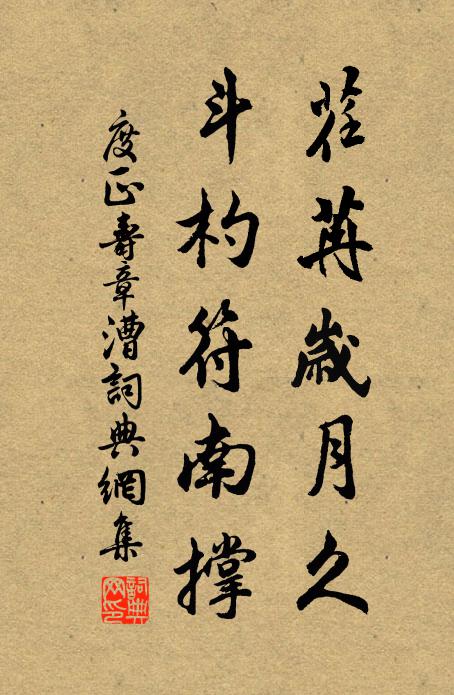 荏苒歲月久
斗杓符南撐
度正壽章漕詞典網集
詞典網印